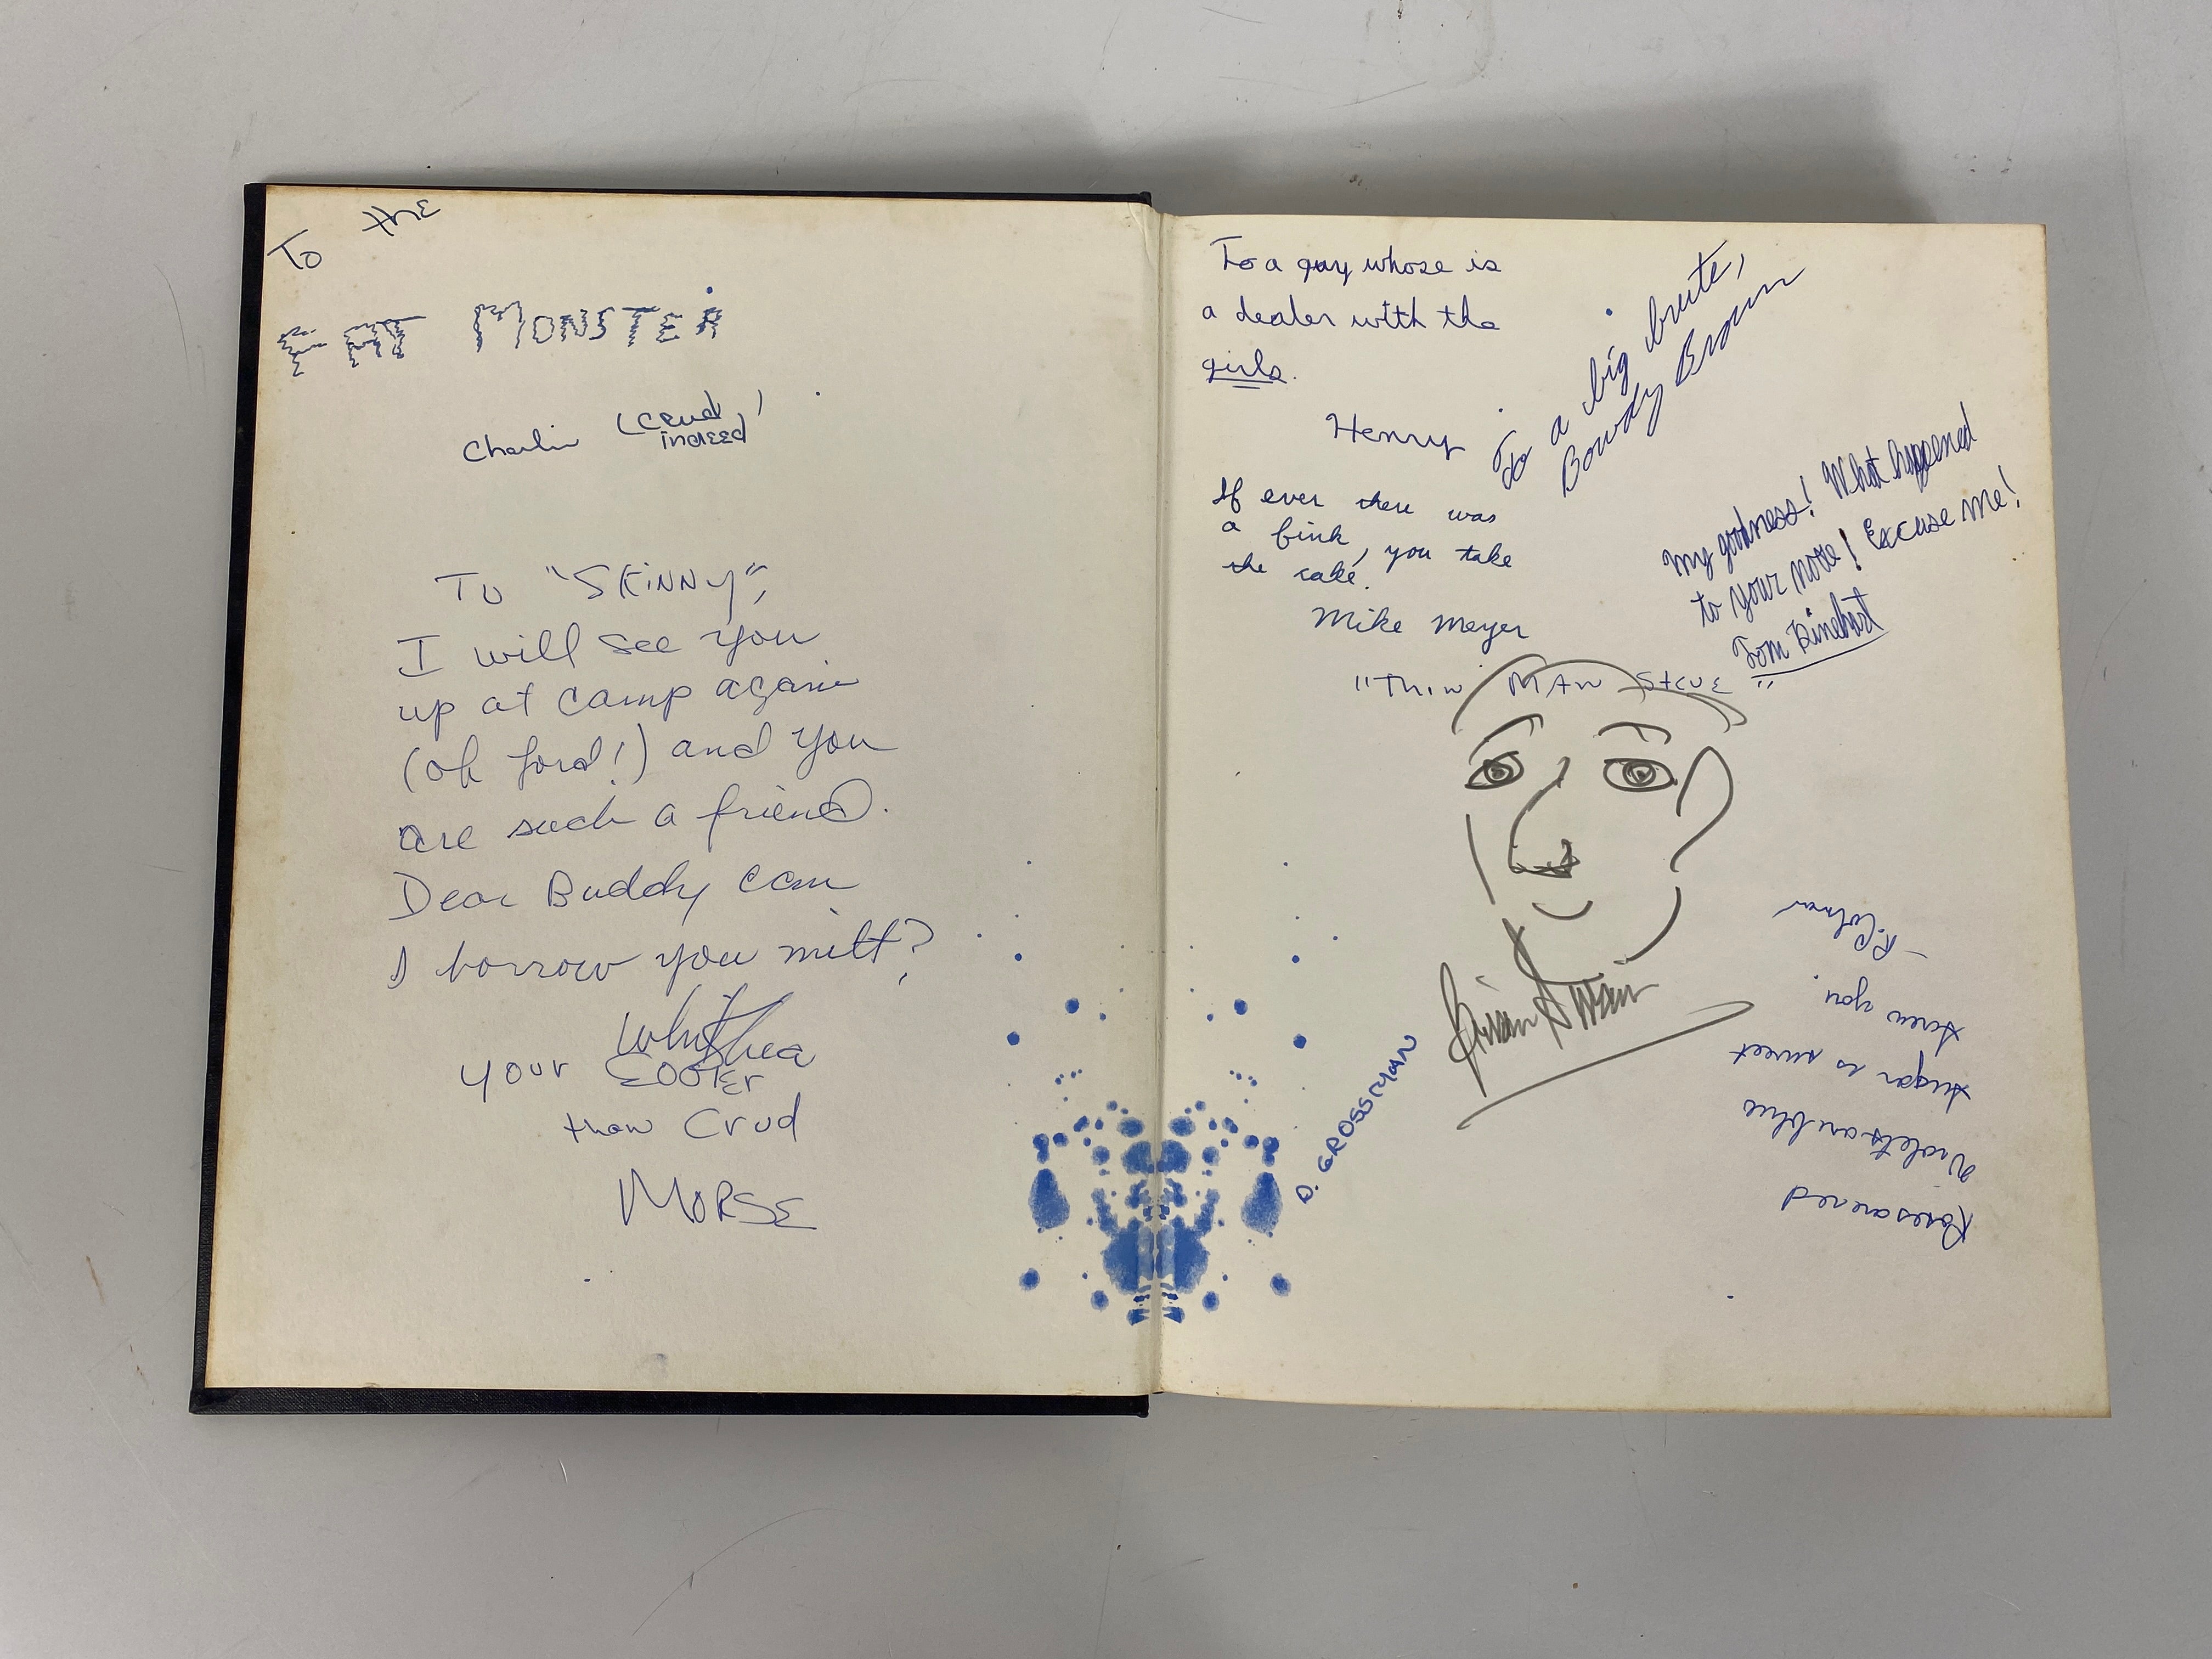 To the
FAT MONSTER
Charlie (Crud
indeed)
To "SKiNNy",
I will see you
up at camp again
(oh lord!) and you
are such a friend.
Dear Buddy can
I borrow you mitt?
your COOTER
than Crud
MORSE
To a guy whose is
a dealer with the
girls.
Henry
To a big brute,
Bowdy Brown
If ever there was
a fink, you take
the cake.
Mike Meyer
My goodness! What happened
to your nose! Excuse me!
Tom Rinehart
"Thin MAN STEVE"
Brian Swain
D. GROSSMAN
Roses are red
Violets are blue
sugar is sweet
screw you.